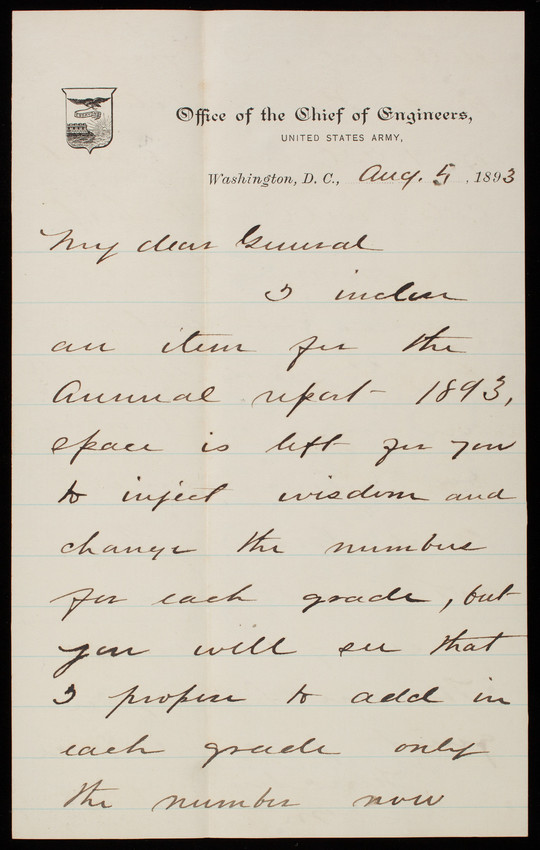 Office of the Chief of Engineers,
UNITED STATES ARMY,
Washington, D. C., Aug. 5, 1893
My dear General
I inclose
an item for the
Annual report 1893,
space is left for you
to inject wisdom and
change the numbers
for each grade, but
you will see that
I propose to add in
each grade only
the number now